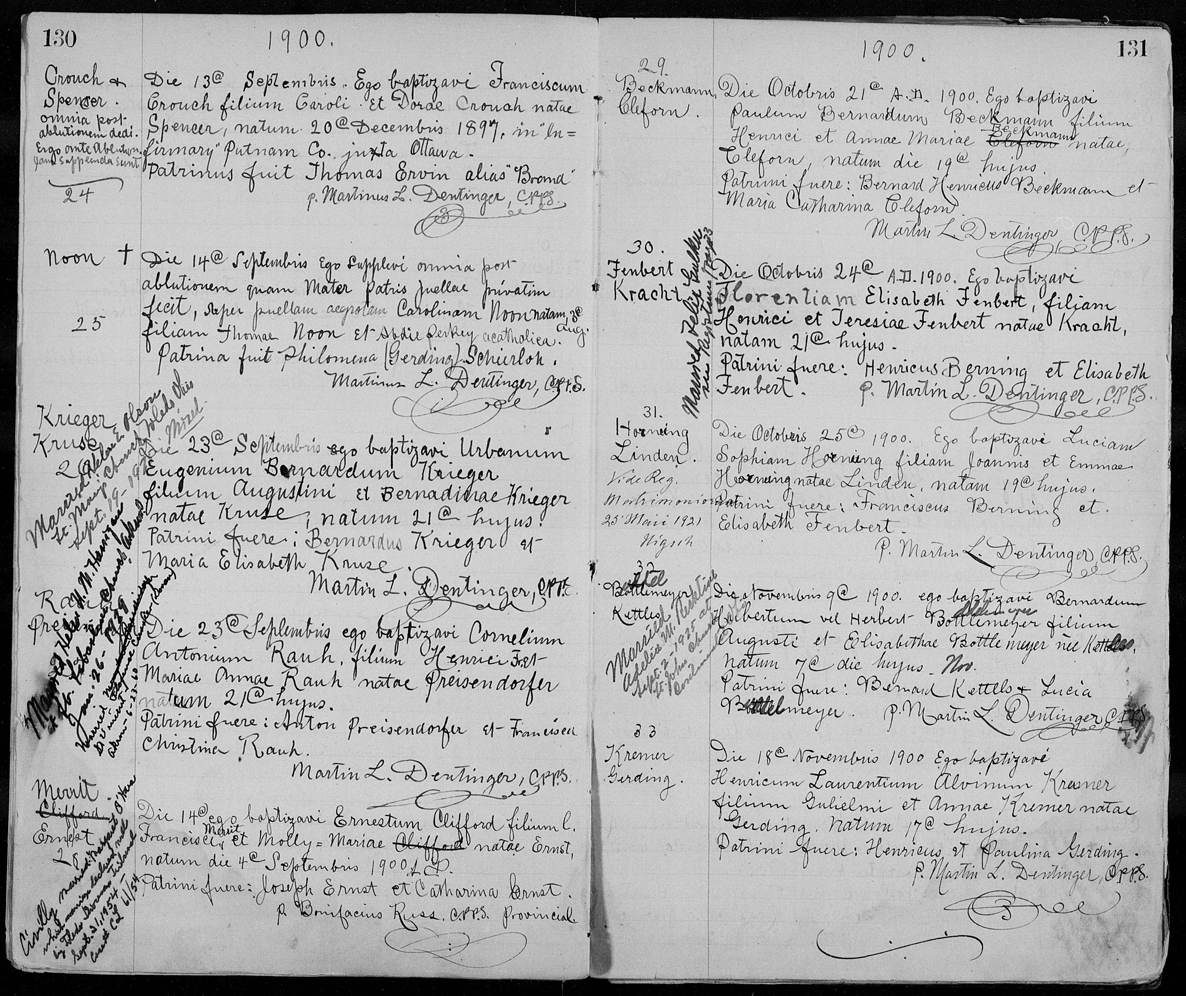 130
1900.
Crouch &
Spenser.
omnia post
ablutionem deai.
Ergo ante Ablutionem
jam supplenda sunt
24
Die 13ª Septembris. Ego baptizavi Franciscum
Crouch filium Caroli Et Dorae Crouch natae
Spencer, natum 20ª Decembris 1897, in "In=
firmary" Putnam Co. juxta Ottawa.
Patrinus fuit Thomas Ervin alias "Bromd"
p. Martinus L. Dentinger, C.PP.S.
Noon †
25
Die 14ª Septembris Ego supplevi omnia post
ablutionem quam Mater Patris puellae privatim
fecit, super puellam aegrotam Carolinam Noon natam, 3ª Aug.
filiam Thomae Noon et Abdie Perkey acatholica.
Patrina fuit Philomena (Gerding) Schierloh.
Martinus L. Dentinger, C.PP.S.
Krieger
Kruse
Married Olson
St. Mary's Church Toledo Ohio
Sept. 19
Die 23ª Septembris ego baptizavi Urbanum
Eugenium Bernardum Krieger
filium Augustini et Bernadinae Krieger
natae Kruse, natum 21ª hujus
Patrini fuere: Bernardus Krieger et
Maria Elisabeth Kruse.
Martin L. Dentinger, C.PP.S.
Married Helen
Jan. 26 - 1929
Die 23ª Septembris ego baptizavi Cornelium
Antonium Rauh, filium Henrici F. et
Mariae Annae Rauh natae Preisendorfer
natum 21ª hujus.
Patrini fuere: Anton Preisendorfer et Francisca
Christina Rauh.
Martin L. Dentinger, C.PP.S.
Merrit
Clifford
Ernst
Civilly married Margaret O'Hara
Sept. 21, 1954
Die 14ª ego baptizavi Ernestum Clifford filium C.
Francisci Merrit et Molly=Mariae Clifford natae Ernst,
natum die 4ª Septembris 1900
Patrini fuere: Joseph Ernst et Catharina Ernst.
p. Bonifacius Russ. C.PP.S. Provincial
131
1900.
29.
Beckmann
Cleforn.
Die Octobris 21ª A.D. 1900. Ego baptizavi
Paulum Bernardum Beckmann filium
Henrici et Annae Mariae Cleforn Beckmann natae,
Cleforn, natum die 19ª hujus.
Patrini fuere: Bernard Henricus Beckmann et
Maria Catharina Cleforn.
Martin L. Dentinger, C.PP.S.
30.
Fenbert
Kracht
Married Felix
Die Octobris 24ª A.D. 1900. Ego baptizavi
Florentiam Elisabeth Fenbert, filiam
Henrici et Teresiae Fenbert natae Kracht,
natam 21ª hujus.
Patrini fuere: Henricus Berning et Elisabeth
Fenbert. P. Martin L. Dentinger, C.PP.S.
31.
Horning
Linden.
Vide Reg.
Matrimonior
25 Maii 1921
Die Octobris 25ª 1900. Ego baptizavi Luciam
Sophiam Horning filiam Joannis et Emmae
Horning natae Linden, natam 19ª hujus.
Patrini fuere: Franciscus Berning et
Elisabeth Fenbert.
P. Martin L. Dentinger C.PP.S.
32
Bottlemeyer
Kettles
Married
Sept. 2 - 1925 at
St. John Church
Die Novembris 9ª 1900. ego baptizavi Bernardum
Hubertum vel Herbert Bottlemeyer filium
Augusti et Elisabethae Bottlemeyer née Kettles,
natum 7ª die hujus. Nov.
Patrini fuere: Bernard Kettels & Lucia
Bottelmeyer. P. Martin L. Dentinger C.PP.S.
33
Kremer
Gerding.
Die 18ª Novembris 1900 Ego baptizavi
Henricum Laurentium Alvinum Kremer
filium Gulielmi et Annae Kremer natae
Gerding. natum 17ª hujus.
Patrini fuere: Henricus et Paulina Gerding.
P. Martin L. Dentinger, C.PP.S.